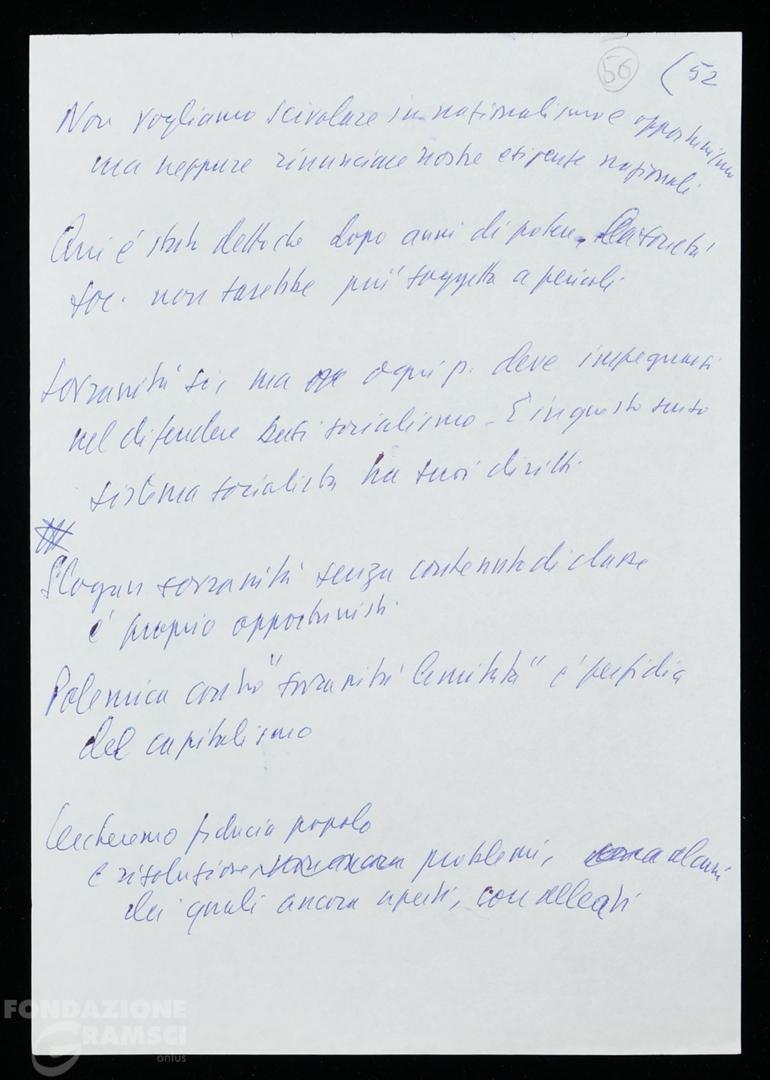 56 (52
Non vogliamo scivolare in nazionalismo e opportunismo
ma neppure rinunciare nostre esigenze nazionali
Qui è stato detto che dopo anni di potere, la società
soc. non sarebbe più soggetta a pericoli.
Sovranità sì, ma ogni p. deve impegnarsi
nel difendere basi socialismo. E in questo senso
sistema socialista ha suoi diritti.
Slogan sovranità senza contenuto di classe
è proprio opportunisti.
Polemica contro "sovranità limitata" è perfidia
del capitalismo
Cercheremo fiducia popolo
e risoluzione problemi, alcuni
dei quali ancora aperti, con alleati
FONDAZIONE
GRAMSCI
onlus